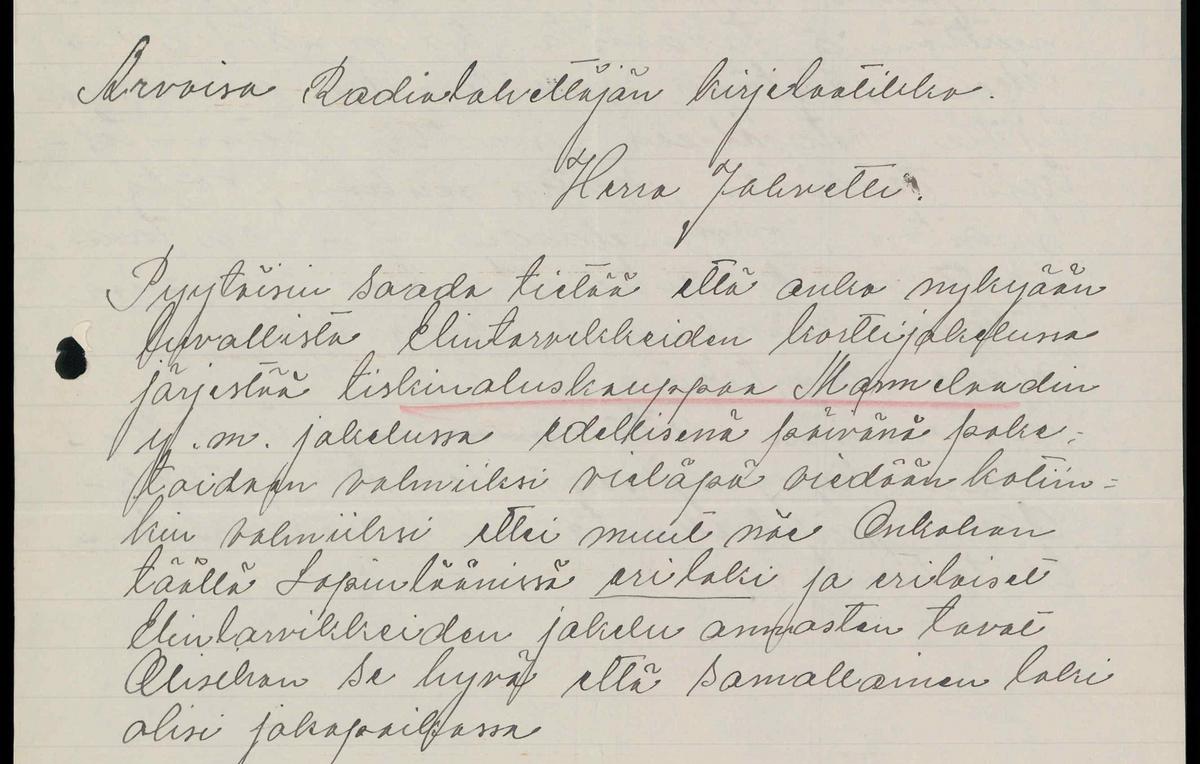 Arvoisa Radiotalvettäjän kirjelaatikko.
Herra Jahvetti.
Pyytäisin saada tietää että onko nykyään
luvallista Elintarvikkeiden korttijakelussa
järjestää tiskinaluskauppaa Marmelaadin
y.m. jakelussa edellisenä päivänä pake-
toidaan valmiiksi vieläpä viedään kotiin=
kin valmiiksi ettei muut näe Onkohan
täällä Lapinläänissä erilaki ja erilaiset
Elintarvikkeiden jakelu annosten tavat
Olisikan se hyvä että samallainen laki
olisi jokapaikassa